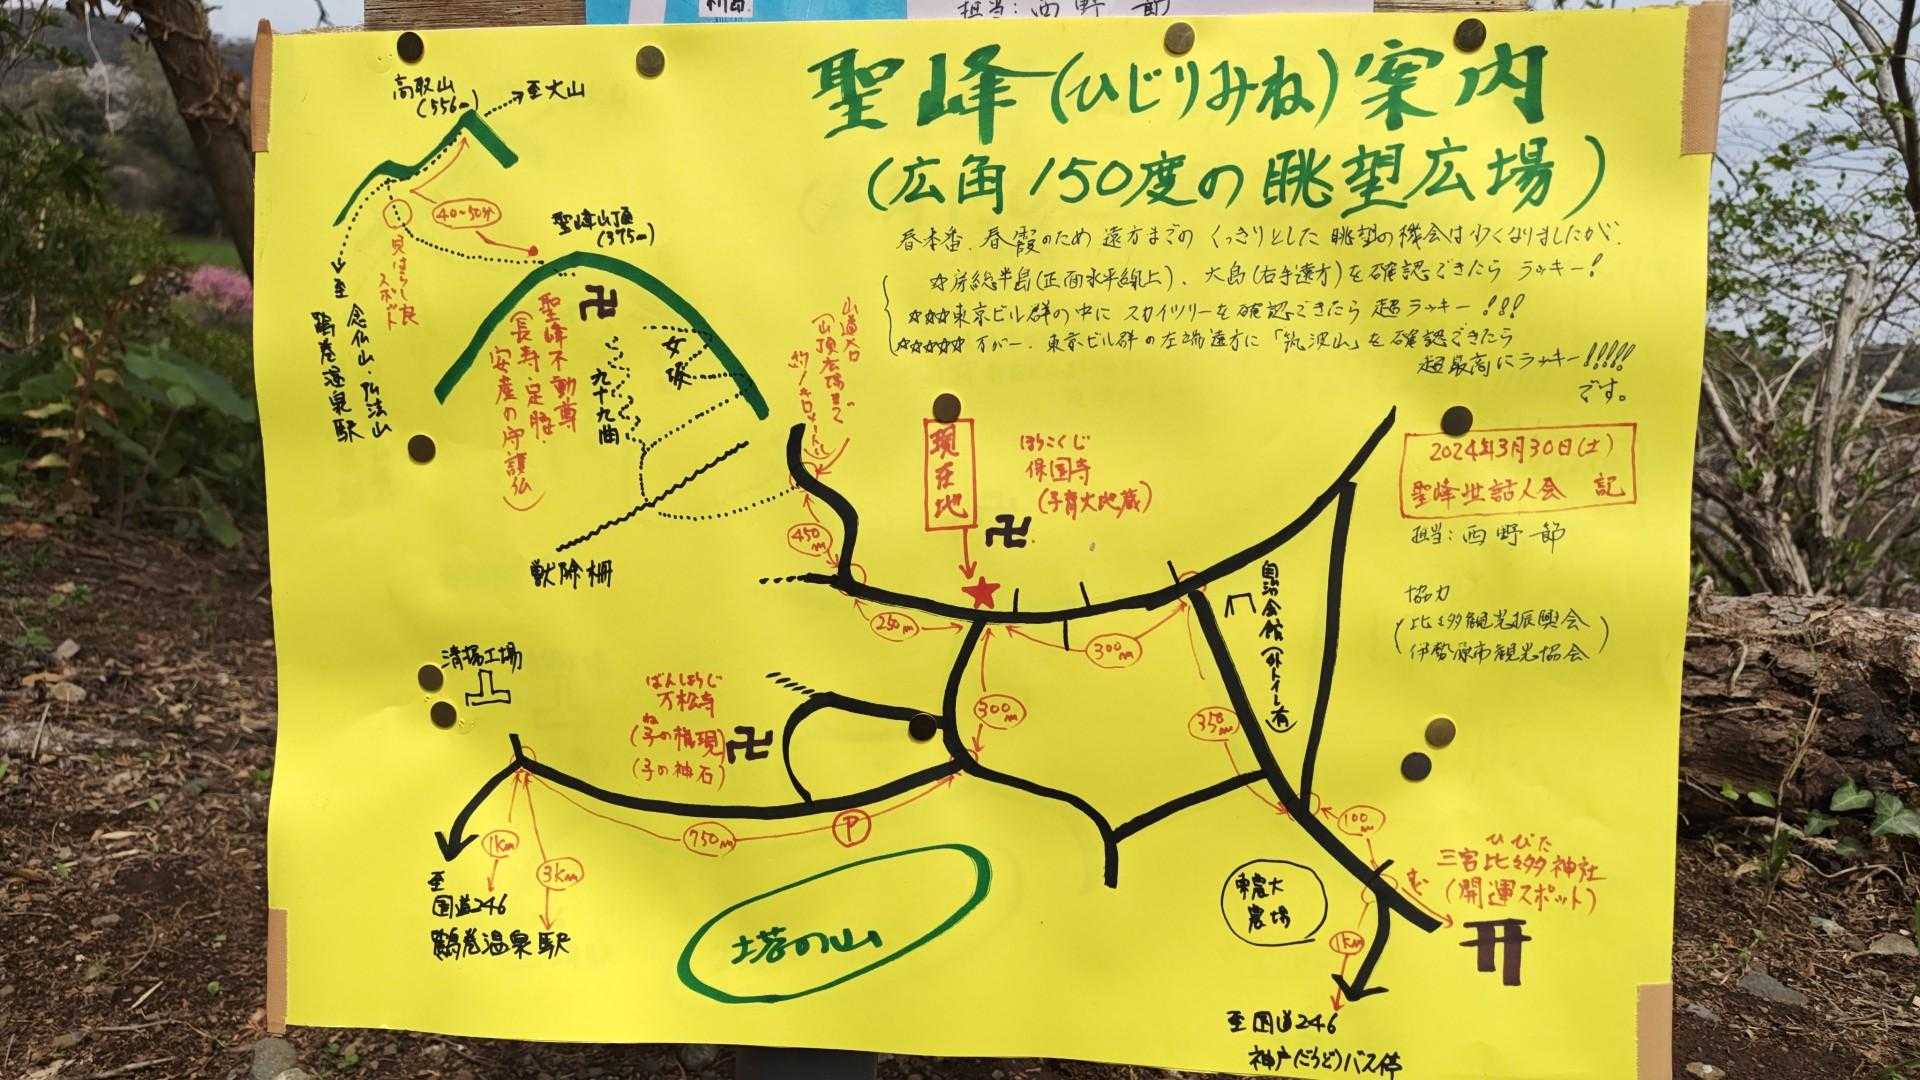 担当:西野 節
聖峰(ひじりみね)案内
(広角150度の眺望広場)
春本番、春霞のため 遠方までの くっきりとした 眺望の機会は少くなりましたが、
☆房総半島(正面水平線上)、大島(右手遠方)を確認できたら ラッキー!
☆☆☆東京ビル群の中に スカイツリーを確認できたら 超ラッキー!!!
☆☆☆☆☆ 万が一、東京ビル群の左端遠方に「筑波山」を確認できたら
超最高にラッキー!!!!!
です。
2024年3月30日(土)
聖峰世話人会 記
担当:西野 節
協力
(比々多観光振興会
伊勢原市観光協会)
高取山
(556m)
至大山
40~50分
見はらし良
スポット
至 念仏山・弘法山
鶴巻温泉駅
聖峰山頂
(375m)
卍
聖峰不動尊
(長寿・定膳・
安産の守護仏)
九十九曲
女坂
山道入口
(山頂広場まで
獣除柵
450m
現在地
ほうこくじ
保国寺
(子育大地蔵)
卍
250m
300m
自治会館(外トイレ有)
清掃工場
ばんしょうじ
万松寺
ね
(子の権現)
(子の神石)
卍
300m
350m
750m
P
100m
1km
3km
至
国道246
鶴巻温泉駅
塔の山
東農大
農場
ひびた
三宮比々多神社
(開運スポット)
すぐ
1km
至国道246
神戸(ごうど)バス停